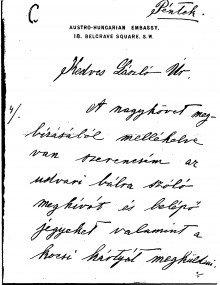 C
Péntek.
AUSTRO-HUNGARIAN EMBASSY,
18, BELGRAVE SQUARE. S.W.
Kedves László Úr,
A nagykövet meg-
bizásából mellékelve
van szerencsém az
udvari bálra szóló
meghívót és belépő
jegyeket valamint a
kocsi kártyát megküldeni,